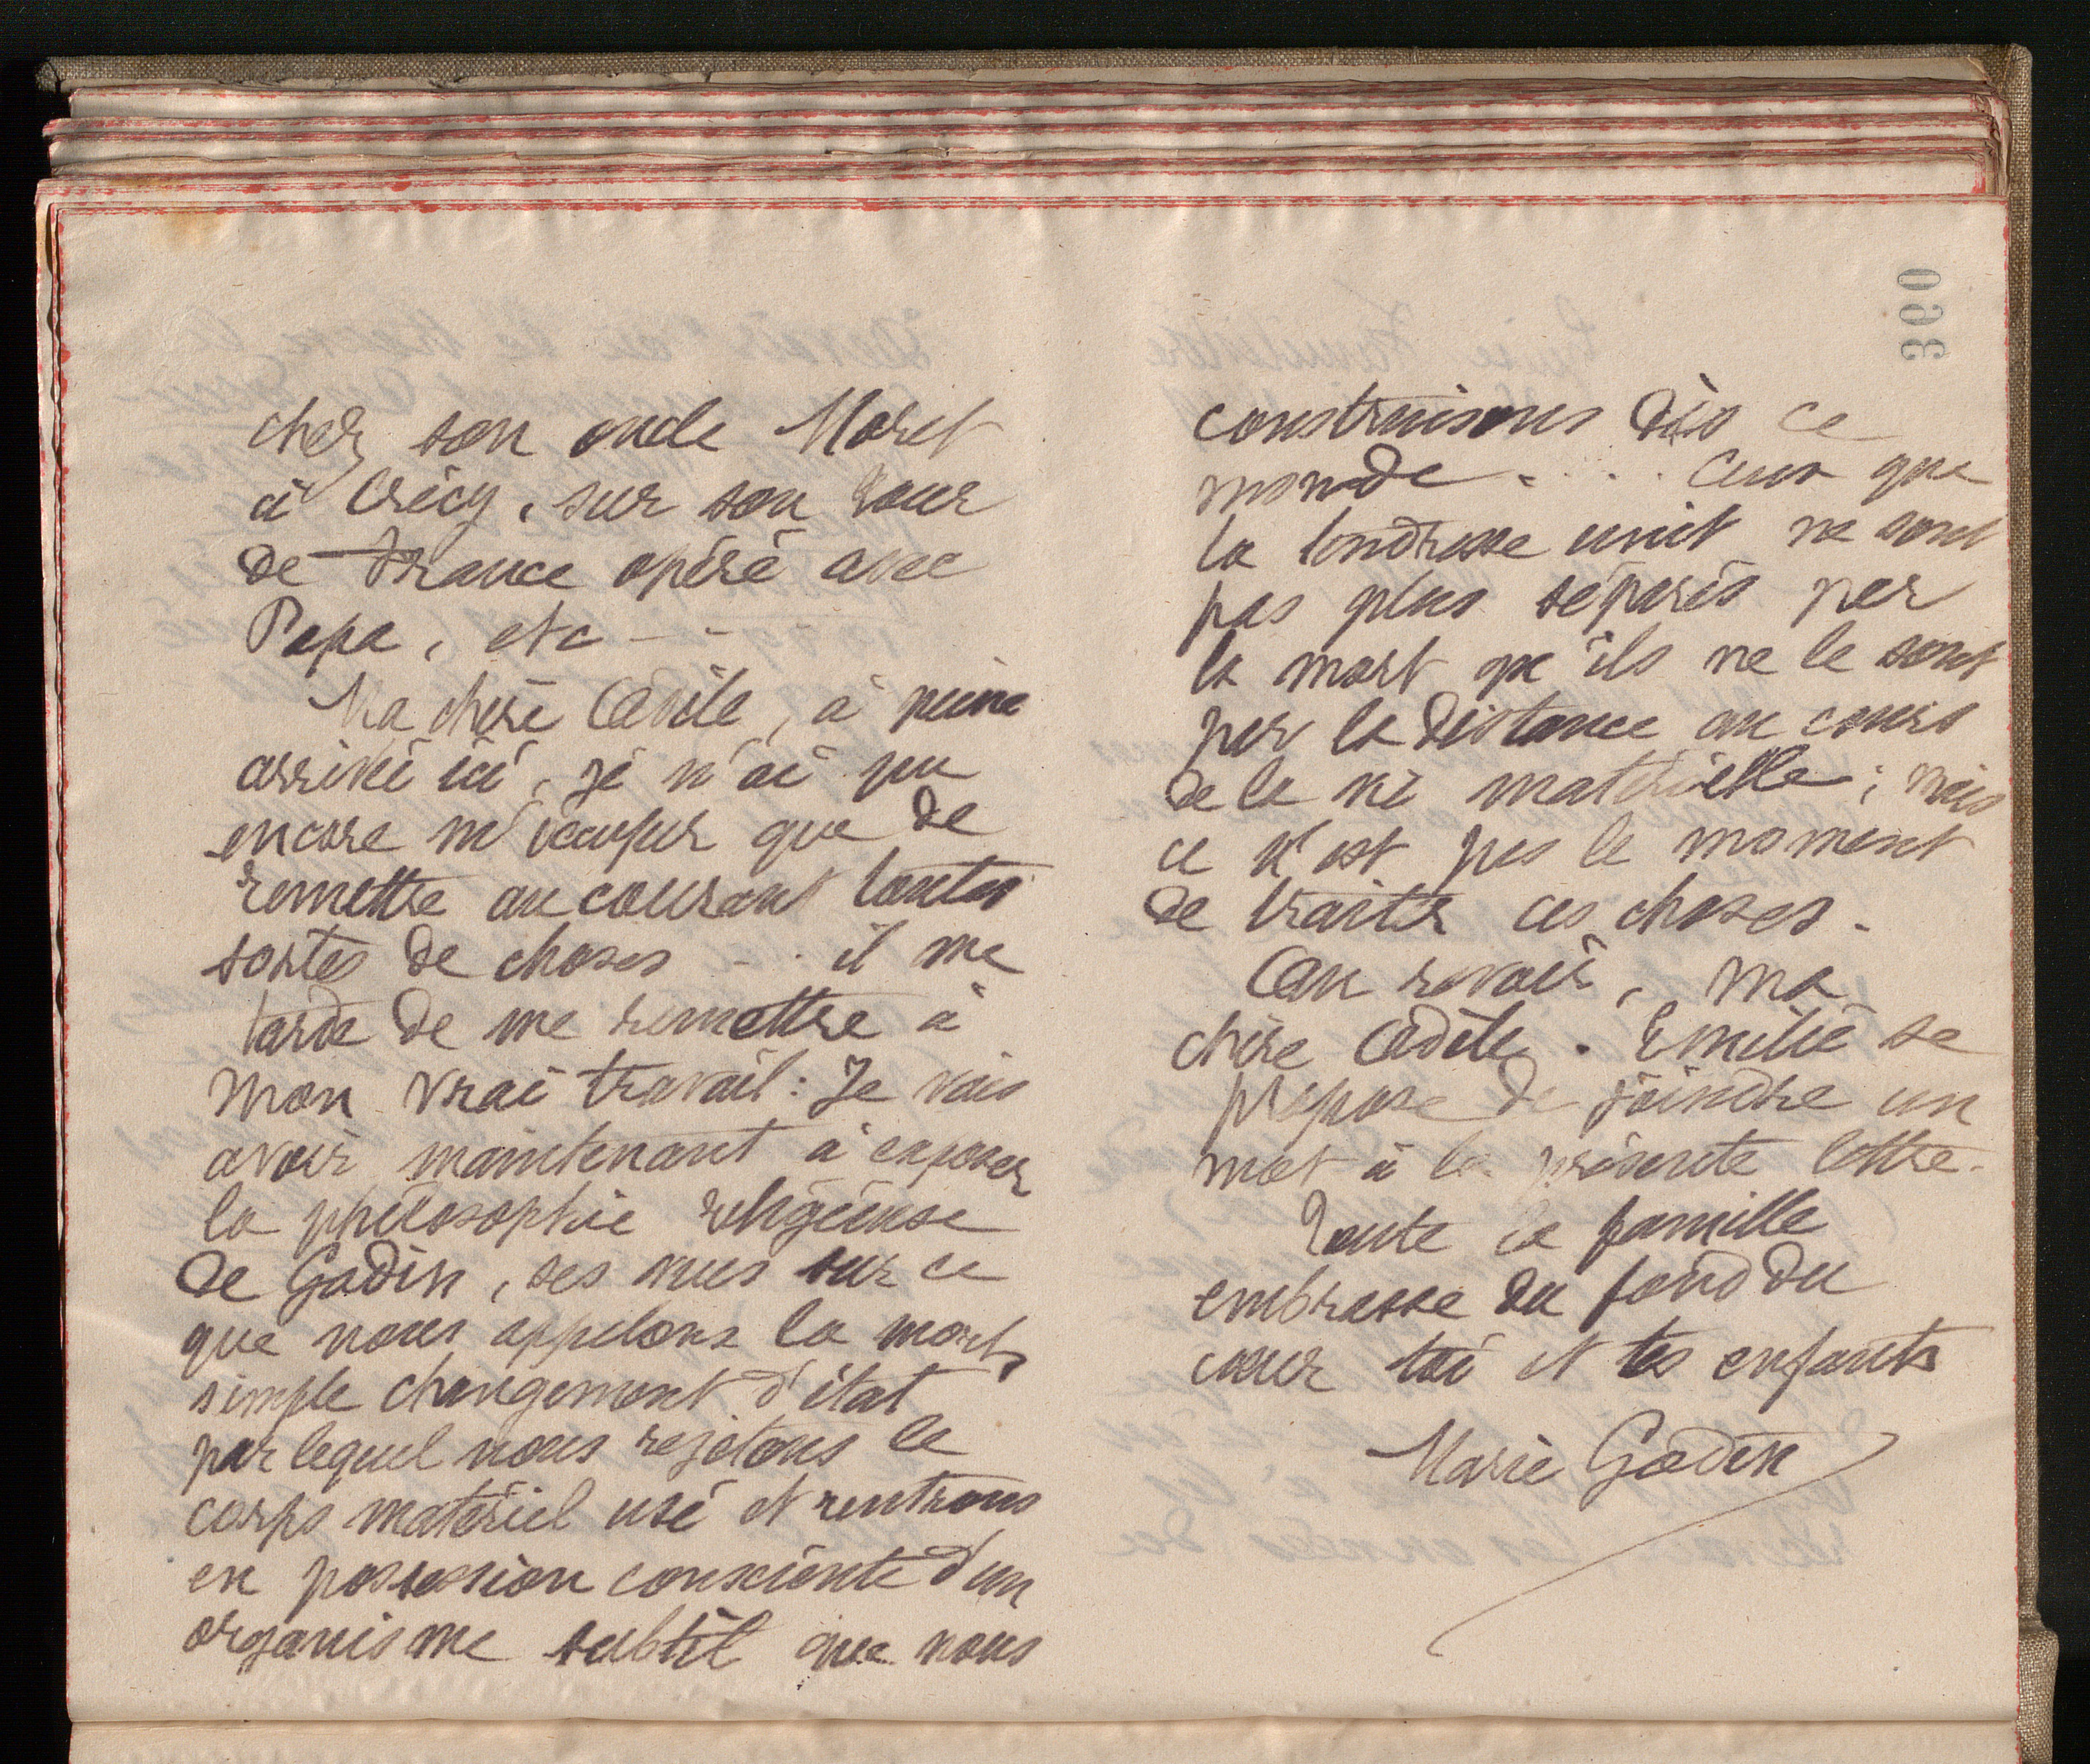 chez son oncle Moret
à Crécy, sur son tour
de France opéré avec
Papa, etc - -
Ma chère Adèle, à peine
arrivé ici, je n'ai pu
encore m'occuper que de
remettre au courant toutes
sortes de choses - . . il me
tarde de me remettre à
mon vrai travail : Je vais
avoir maintenant à exposer
la philosophie religieuse
de Godin, ses vues sur ce
que nous appelons la mort,
simple changement d'état
par lequel nous rejetons le
corps matériel usé et rentrons
en possession consciente d'un
organisme subtil que nous
360
construisons dès ce
monde . . . . Ceux que
la tendresse unit ne sont
pas plus séparés par
la mort qu'ils ne le sont
par la distance au cours
de la vie matérielle ; mais
ce n'est pas le moment
de traiter ces choses.
Au revoir, ma
chère Adèle. Emilie se
propose de joindre un
mot à la présente lettre.
Toute la famille
embrasse du fond du
cœur toi et tes enfants
Marie Godin